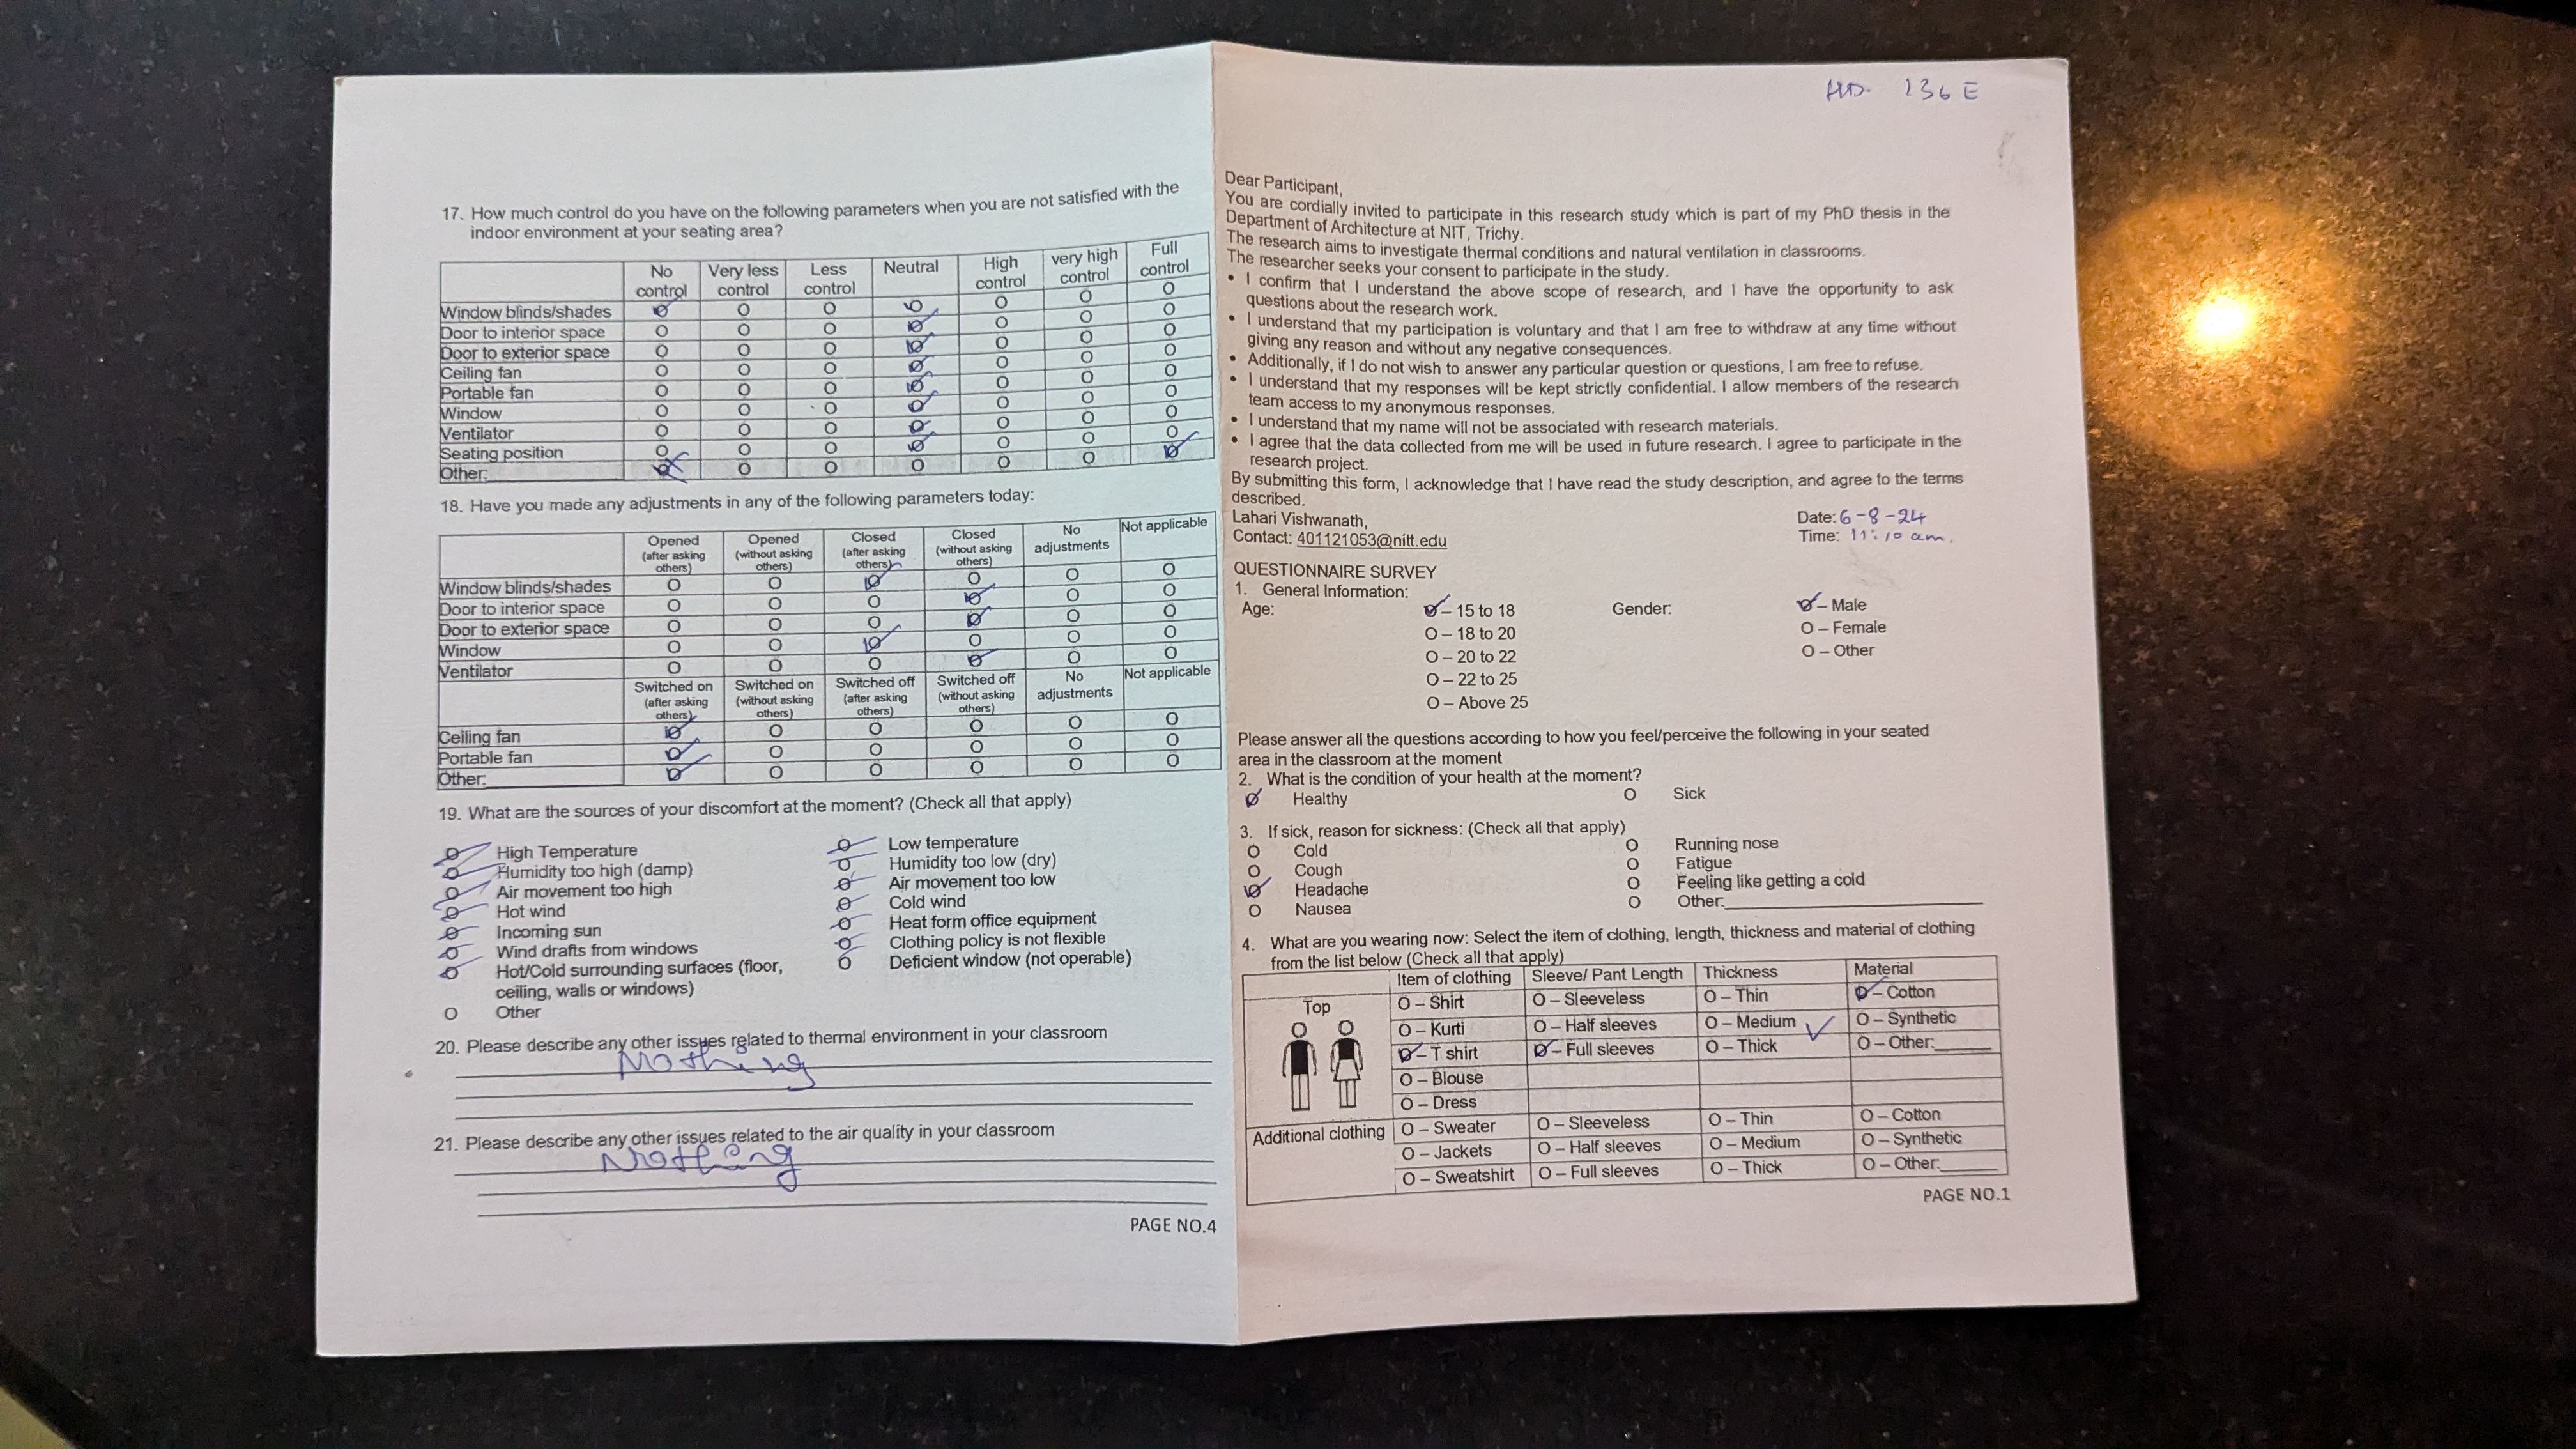 17. How much control do you have on the following parameters when you are not satisfied with the
indoor environment at your seating area?
No control Very less control Less control Neutral High control very high control Full control
Window blinds/shades O O O O O O O
Door to interior space O O O O O O O
Door to exterior space O O O O O O O
Ceiling fan O O O O O O O
Portable fan O O O O O O O
Window O O O O O O O
Ventilator O O O O O O O
Seating position O O O O O O O
Other: O O O O O O O
18. Have you made any adjustments in any of the following parameters today:
Opened (after asking others) Opened (without asking others) Closed (after asking others) Closed (without asking others) No adjustments Not applicable
Window blinds/shades O O O O O O
Door to interior space O O O O O O
Door to exterior space O O O O O O
Window O O O O O O
Ventilator O O O O O O
Switched on (after asking others) Switched on (without asking others) Switched off (after asking others) Switched off (without asking others) No adjustments Not applicable
Ceiling fan O O O O O O
Portable fan O O O O O O
Other: O O O O O O
19. What are the sources of your discomfort at the moment? (Check all that apply)
O High Temperature O Low temperature
O Humidity too high (damp) O Humidity too low (dry)
O Air movement too high O Air movement too low
O Hot wind O Cold wind
O Incoming sun O Heat form office equipment
O Wind drafts from windows O Clothing policy is not flexible
O Hot/Cold surrounding surfaces (floor, O Deficient window (not operable)
ceiling, walls or windows)
O Other
20. Please describe any other issues related to thermal environment in your classroom
Nothing
21. Please describe any other issues related to the air quality in your classroom
Nothing
PAGE NO.4
136 E
Dear Participant,
You are cordially invited to participate in this research study which is part of my PhD thesis in the
Department of Architecture at NIT, Trichy.
The research aims to investigate thermal conditions and natural ventilation in classrooms.
The researcher seeks your consent to participate in the study.
• I confirm that I understand the above scope of research, and I have the opportunity to ask
questions about the research work.
• I understand that my participation is voluntary and that I am free to withdraw at any time without
giving any reason and without any negative consequences.
• Additionally, if I do not wish to answer any particular question or questions, I am free to refuse.
• I understand that my responses will be kept strictly confidential. I allow members of the research
team access to my anonymous responses.
• I understand that my name will not be associated with research materials.
• I agree that the data collected from me will be used in future research. I agree to participate in the
research project.
By submitting this form, I acknowledge that I have read the study description, and agree to the terms
described.
Lahari Vishwanath, Date: 6-8-24
Contact: 401121053@nitt.edu Time: 11:10 am.
QUESTIONNAIRE SURVEY
1. General Information:
Age: O – 15 to 18 Gender: O – Male
O – 18 to 20 O – Female
O – 20 to 22 O – Other
O – 22 to 25
O – Above 25
Please answer all the questions according to how you feel/perceive the following in your seated
area in the classroom at the moment
2. What is the condition of your health at the moment?
O Healthy O Sick
3. If sick, reason for sickness: (Check all that apply)
O Cold O Running nose
O Cough O Fatigue
O Headache O Feeling like getting a cold
O Nausea O Other:
4. What are you wearing now: Select the item of clothing, length, thickness and material of clothing
from the list below (Check all that apply)
Item of clothing Sleeve/ Pant Length Thickness Material
Top O – Shirt O – Sleeveless O – Thin O – Cotton
O – Kurti O – Half sleeves O – Medium O – Synthetic
O – T shirt O – Full sleeves O – Thick O – Other:
O – Blouse
O – Dress
Additional clothing O – Sweater O – Sleeveless O – Thin O – Cotton
O – Jackets O – Half sleeves O – Medium O – Synthetic
O – Sweatshirt O – Full sleeves O – Thick O – Other:
PAGE NO.1